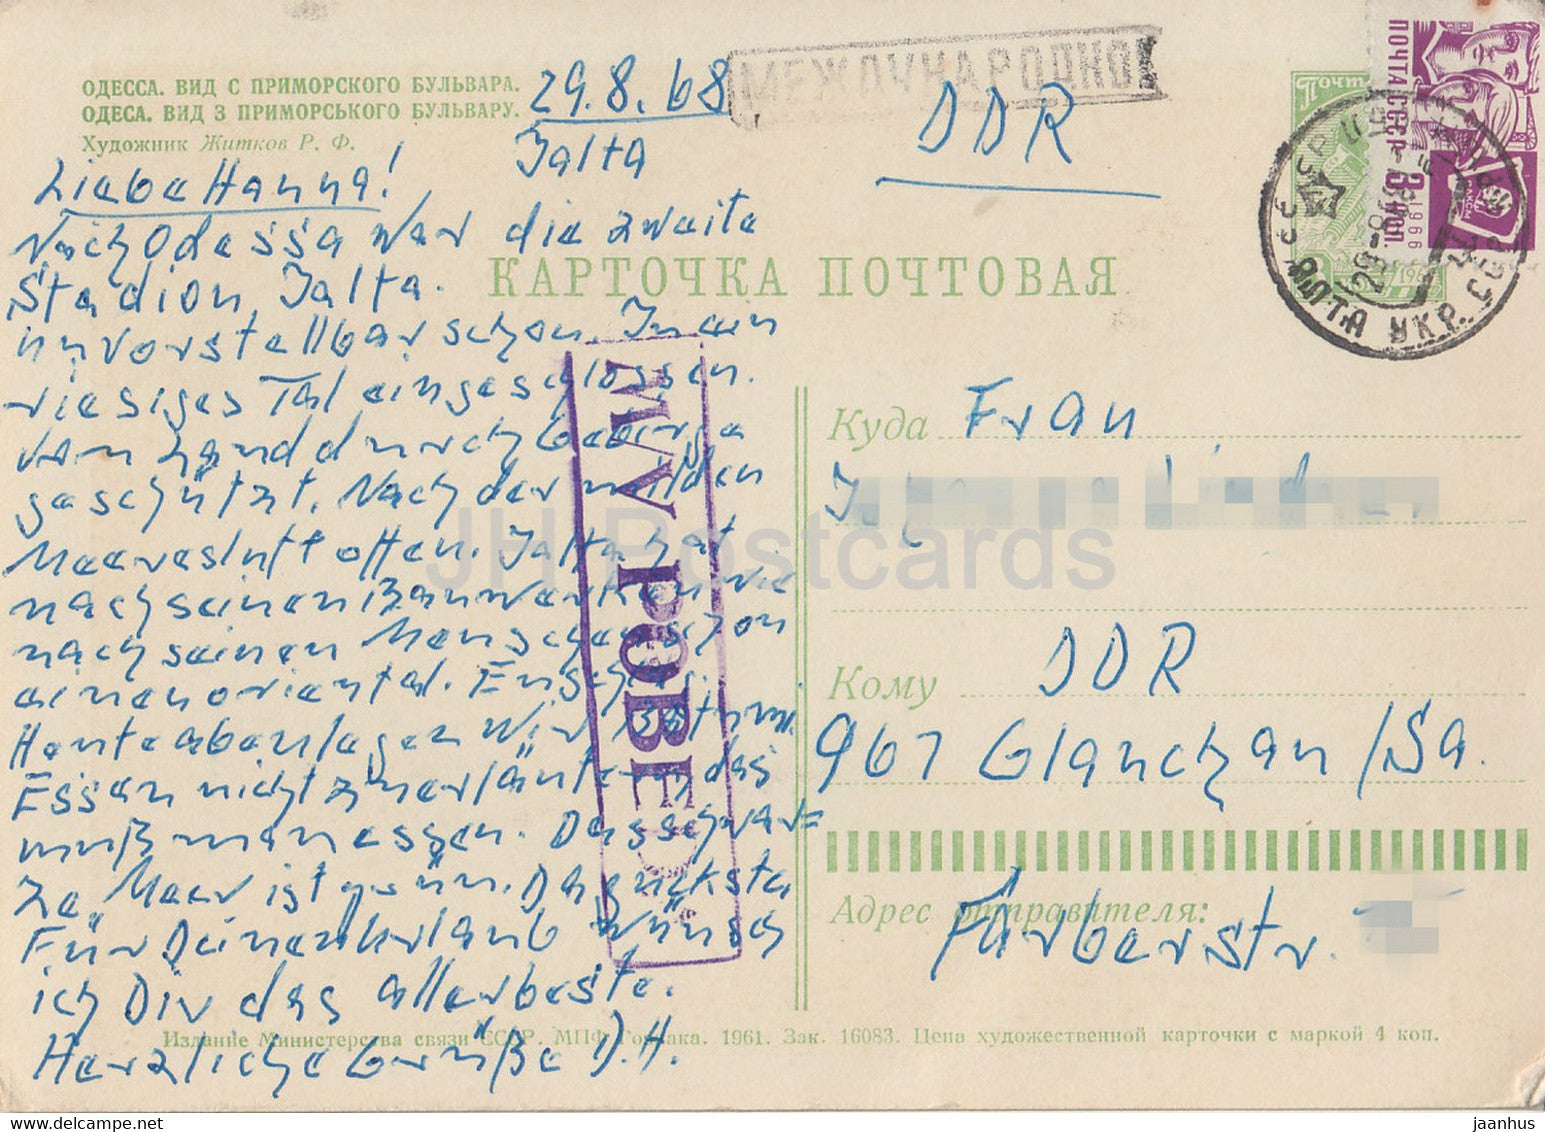 ОДЕССА. ВИД С ПРИМОРСКОГО БУЛЬВАРА.
ОДЕСА. ВИД З ПРИМОРСЬКОГО БУЛЬВАРУ.
Художник Житков Р. Ф.
29.8.68
Jalta
Liebe Hanna!
Nach Odessa war die zweite
Stadion Jalta.
unvorstellbar schön. In ein
riesiges Tal eingeschlossen.
vom Land durch Gebirge
geschützt. Nach der milden
Meeresluft offen. Jalta hat
nach seinen Bauwerken wie
nach seinen Menschen schon
einen oriental.
Heute abend lagen wir
Essen nicht zu erläutern, das
muß man essen. Das schwar=
ze Meer ist grün. Das
Für Deinen Urlaub wünsch
ich Dir das allerbeste.
Herzliche Grüße D. H.
МЕЖДУНАРОДНОЕ
DDR
Почта
ПОЧТА СССР 3 коп.
1966
ЯЛТА УКР. ССР
КАРТОЧКА ПОЧТОВАЯ
MVPOBEDA
Куда Frau
Кому DDR
961 Glauchau/Sa.
Адрес отправителя:
Färberstr.
Издание Министерства связи СССР. МПФ Гознака. 1961. Зак. 16083. Цена художественной карточки с маркой 4 коп.
JH Postcards
jaanhus @ delcampe.net